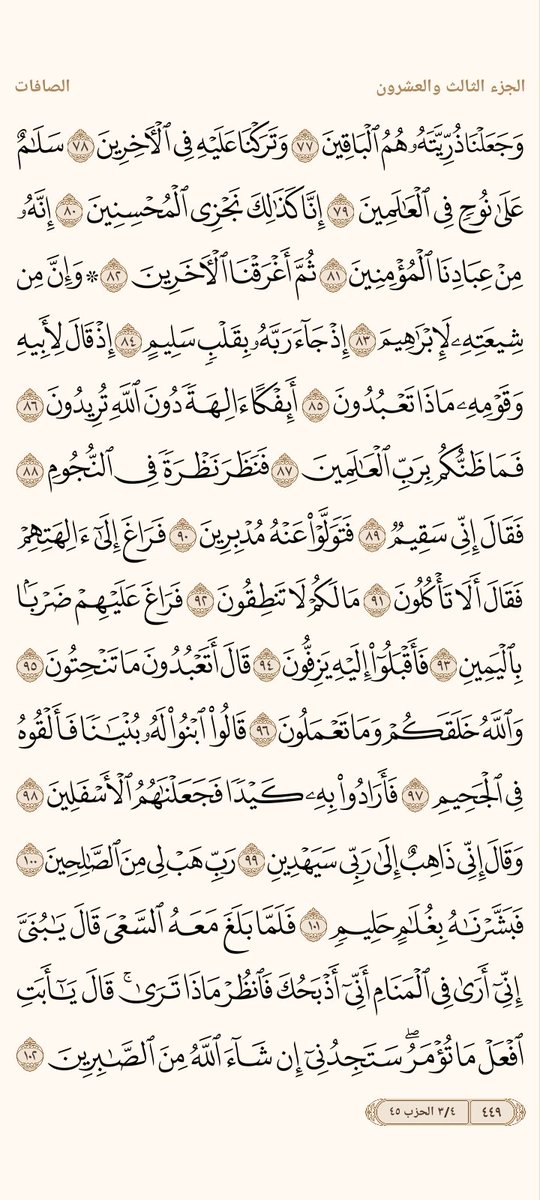 الجزء الثالث والعشرون الصافات
وَجَعَلْنَا ذُرِّيَّتَهُۥ هُمُ ٱلْبَاقِينَ ٧٧ وَتَرَكْنَا عَلَيْهِ فِى ٱلْءَاخِرِينَ ٧٨ سَلَٰمٌ
عَلَىٰ نُوحٍ فِى ٱلْعَٰلَمِينَ ٧٩ إِنَّا كَذَٰلِكَ نَجْزِى ٱلْمُحْسِنِينَ ٨٠ إِنَّهُۥ
مِنْ عِبَادِنَا ٱلْمُؤْمِنِينَ ٨١ ثُمَّ أَغْرَقْنَا ٱلْءَاخَرِينَ ٨٢ ۞ وَإِنَّ مِن
شِيعَتِهِۦ لَإِبْرَٰهِيمَ ٨٣ إِذْ جَآءَ رَبَّهُۥ بِقَلْبٍ سَلِيمٍ ٨٤ إِذْ قَالَ لِأَبِيهِ
وَقَوْمِهِۦ مَاذَا تَعْبُدُونَ ٨٥ أَئِفْكًا ءَالِهَةً دُونَ ٱللَّهِ تُرِيدُونَ ٨٦
فَمَا ظَنُّكُم بِرَبِّ ٱلْعَٰلَمِينَ ٨٧ فَنَظَرَ نَظْرَةً فِى ٱلنُّجُومِ ٨٨
فَقَالَ إِنِّى سَقِيمٌ ٨٩ فَتَوَلَّوْا۟ عَنْهُ مُدْبِرِينَ ٩٠ فَرَاغَ إِلَىٰٓ ءَالِهَتِهِمْ
فَقَالَ أَلَا تَأْكُلُونَ ٩١ مَا لَكُمْ لَا تَنطِقُونَ ٩٢ فَرَاغَ عَلَيْهِمْ ضَرْبًۢا
بِٱلْيَمِينِ ٩٣ فَأَقْبَلُوٓا۟ إِلَيْهِ يَزِفُّونَ ٩٤ قَالَ أَتَعْبُدُونَ مَا تَنْحِتُونَ ٩٥
وَٱللَّهُ خَلَقَكُمْ وَمَا تَعْمَلُونَ ٩٦ قَالُوا۟ ٱبْنُوا۟ لَهُۥ بُنْيَٰنًا فَأَلْقُوهُ
فِى ٱلْجَحِيمِ ٩٧ فَأَرَادُوا۟ بِهِۦ كَيْدًا فَجَعَلْنَٰهُمُ ٱلْأَسْفَلِينَ ٩٨
وَقَالَ إِنِّى ذَاهِبٌ إِلَىٰ رَبِّى سَيَهْدِينِ ٩٩ رَبِّ هَبْ لِى مِنَ ٱلصَّٰلِحِينَ ١٠٠
فَبَشَّرْنَٰهُ بِغُلَٰمٍ حَلِيمٍ ١٠١ فَلَمَّا بَلَغَ مَعَهُ ٱلسَّعْىَ قَالَ يَٰبُنَىَّ
إِنِّىٓ أَرَىٰ فِى ٱلْمَنَامِ أَنِّىٓ أَذْبَحُكَ فَٱنظُرْ مَاذَا تَرَىٰ ۚ قَالَ يَٰٓأَبَتِ
ٱفْعَلْ مَا تُؤْمَرُ ۖ سَتَجِدُنِىٓ إِن شَآءَ ٱللَّهُ مِنَ ٱلصَّٰبِرِينَ ١٠٢
٤٤٩ ٣/٤ الحزب ٤٥